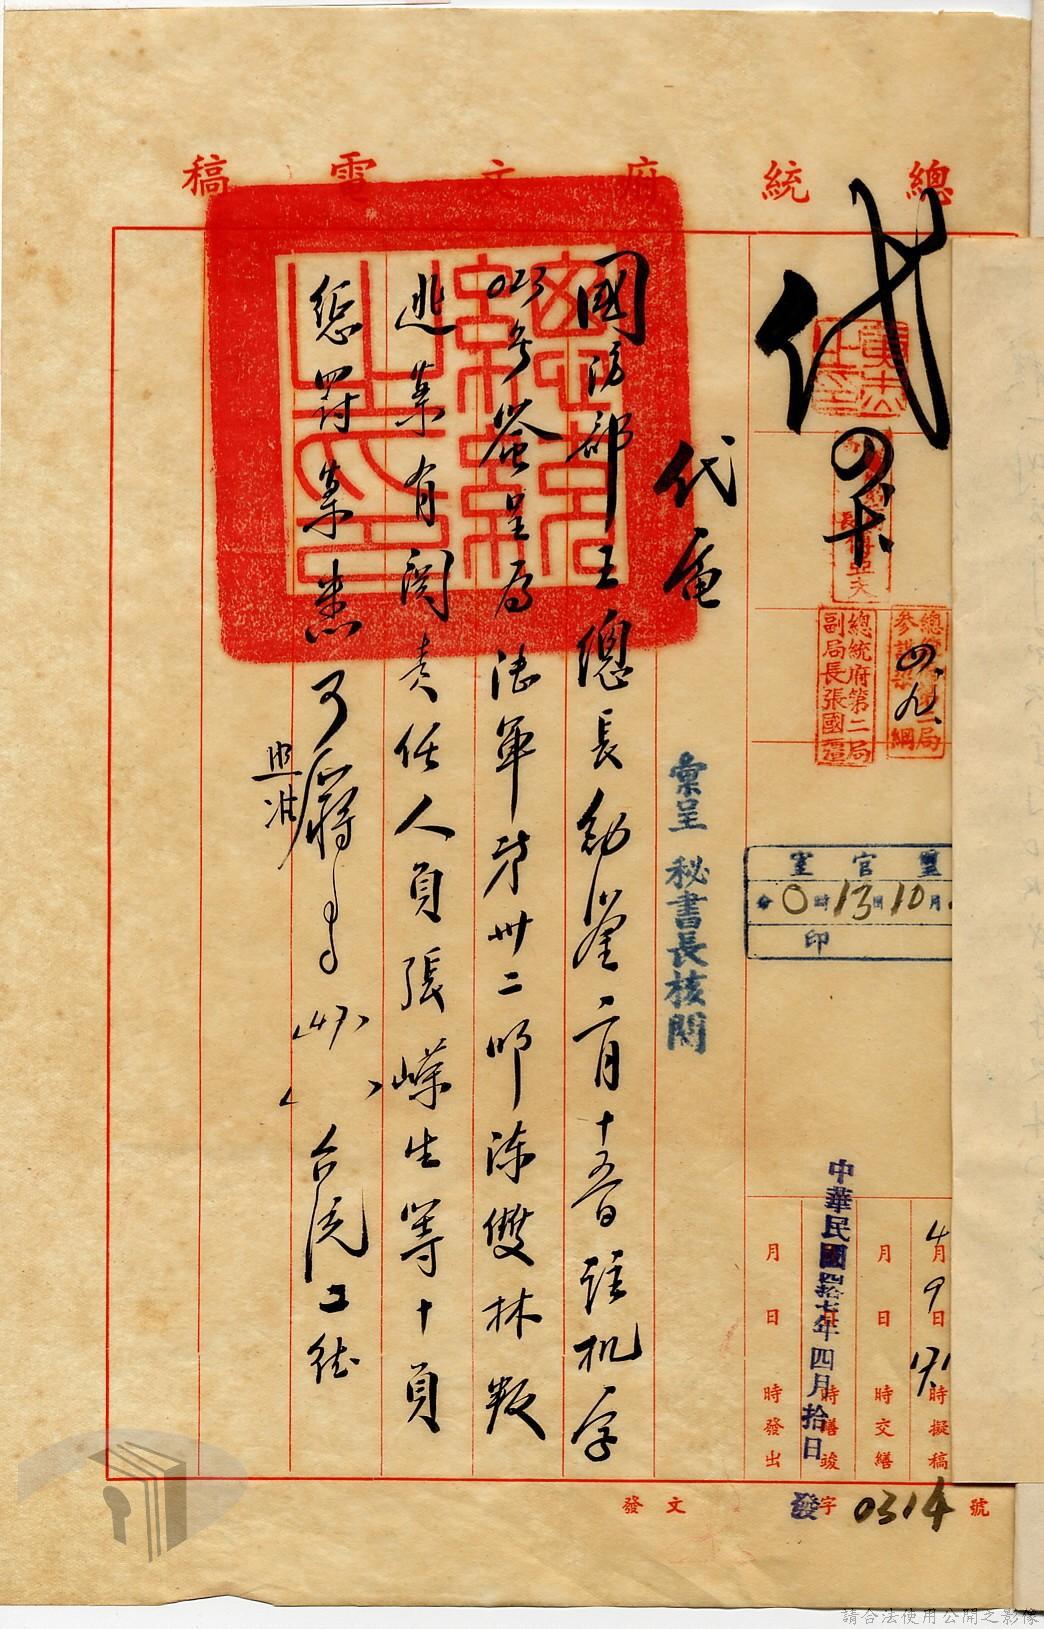 總統府文電稿
代
四、十、
總統府第二局
副局長張國疆
四、九、
璽官室
月10日13時0分
印
4月9日17時擬稿
月日時交繕
時繕竣
中華民國四拾七年四月拾日
月日時發出
彙呈 秘書長核閱
代電
國防部王總長勛鑒二月十五日証机字
023號簽呈為陸軍第卅二師陳雙林叛
逃案有關責任人員張嶸生等十員
懲罰案悉可
照准
(47)
台統二
號
0314
字
發
發文
請合法使用公開之影像